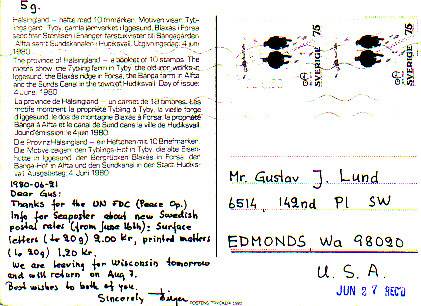 5 g.
Hälsingland – häfte med 10 frimärken. Motiven visar Tybling-
gård, Tyby, gamla järnverket i Iggesund, Blaxås i Forsa
Alfta samt Sundskanalen i Hudiksvall. Utgivningsdag: 4 juni
1980
The province of Hälsingland – a booklet of 10 stamps. The
motifs show: the Tybling farm in Tyby, the old iron works in
Iggesund, the Blaxås ridge in Forsa, the Bånga farm in Alfta
and the Sunds Canal in the town of Hudiksvall. Day of issue:
4 June 1980
La province de Hälsingland – un carnet de 10 timbres. Les
motifs montrent la propriété Tybling à Tyby, la vieille forge
d'Iggesund, le dos de montagne Blaxås à Forsa, la propriété
Bånga à Alfta et le canal de Sund dans la ville de Hudiksvall.
Jour d'émission: le 4 juin 1980
Die Provinz Hälsingland – ein Heftchen mit 10 Briefmarken.
Die Motive zeigen den Tyblings-Hof in Tyby, die alte Eisen-
hütte in Iggesund, den Bergrücken Blaxås in Forsa, den
Bånga-Hof in Alfta und den Sundkanal in der Stadt Hudiks-
vall. Ausgabetag: 4. Juni 1980
1980-06-21
Dear Gus:
Thanks for the UN FDC (Peace Op.)
Info for Seaposter about new Swedish
postal rates (from June 16th): Surface
letters (to 20g) 2.00 Kr, printed matters
(to 20g) 1.20 Kr.
We are leaving for Wisconsin tomorrow
and will return on Aug 7.
Best wishes to both of you.
Sincerely
SVERIGE 75
SVERIGE 75
Mr. Gustav J. Lund
6514 142nd Pl SW
EDMONDS, Wa 98020
U. S. A.
JUN 27 REC'D